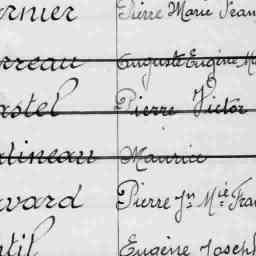 rnier Pierre Marie Jean
rreau Auguste Eugène M
astel Pierre Victor
tineau Maurice
vard Pierre Jn Mie Fran
til Eugène Joseph